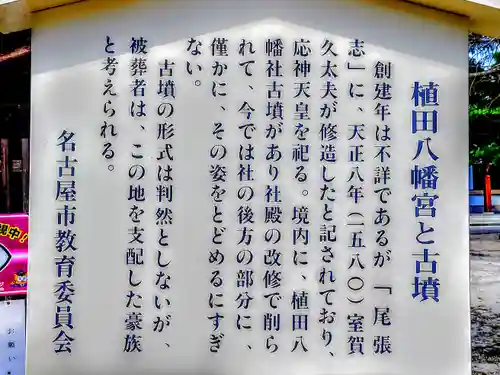 植田八幡宮と古墳
創建年は不詳であるが「尾張
志」に、天正八年(一五八〇)室賀
久太夫が修造したと記されており、
応神天皇を祀る。境内に、植田八
幡社古墳があり社殿の改修で削ら
れて、今では社の後方の部分に、
僅かに、その姿をとどめるにすぎ
ない。
古墳の形式は判然としないが、
被葬者は、この地を支配した豪族
と考えられる。
名古屋市教育委員会
中!
お願い